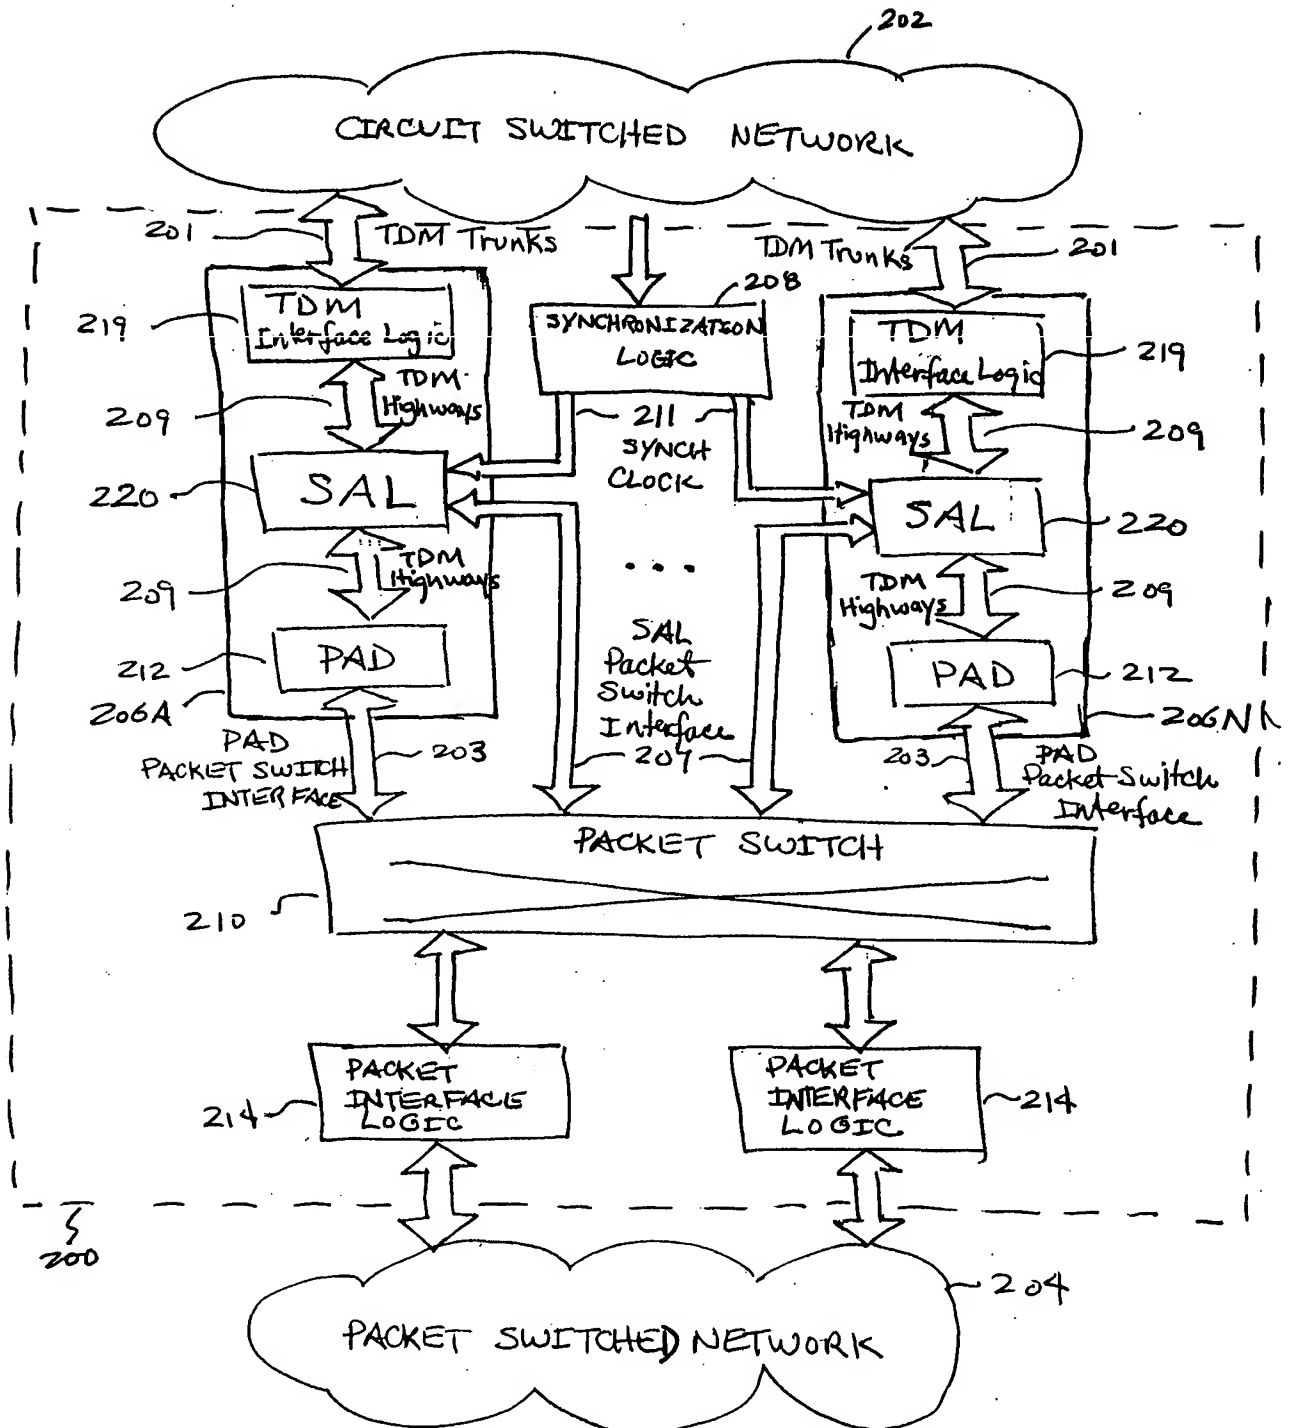 202
CIRCUIT SWITCHED NETWORK
201
TDM Trunks
TDM Trunks
201
208
219
TDM
Interface Logic
SYNCHRONIZATION
LOGIC
TDM
Interface Logic
219
209
TDM
Highways
211
SYNCH
CLOCK
TDM
Highways
209
220
SAL
SAL
220
209
TDM
Highways
...
TDM
Highways
209
212
PAD
SAL
Packet
Switch
Interface
PAD
212
206A
206N
PAD
PACKET SWITCH
INTERFACE
203
207
203
PAD
Packet Switch
Interface
PACKET SWITCH
210
PACKET
INTERFACE
LOGIC
214
PACKET
INTERFACE
LOGIC
214
200
204
PACKET SWITCHED NETWORK